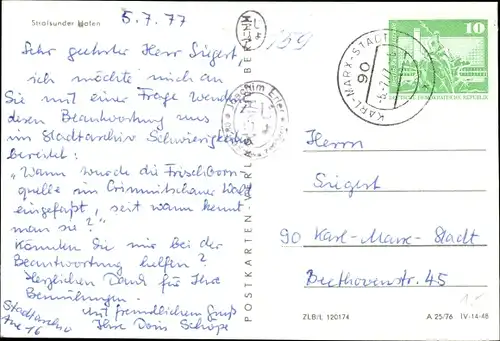 Stralsunder Hafen
5.7.77
Sehr geehrter Herr Siegert
ich möchte mich an
Sie mit einer Frage wenden
deren Beantwortung uns
im Stadtarchiv Schwierigkeiten
bereitet:
"Wann wurde die Frischborn-
quelle im Crimmitschauer Wald
eingefaßt, seit wann kennt
man sie?"
Könnten Sie mir bei der
Beantwortung helfen?
Herzlichen Dank für Ihre
Bemühungen.
Mit freundlichem Gruß
Ihre Doris Schöpe
Stadtarchiv
16
POSTKARTENVERLAG BERLIN
159
Joachim
KARL-MARX-STADT
90
10
DEUTSCHE DEMOKRATISCHE REPUBLIK
Herrn
Siegert
90 Karl-Marx-Stadt
Beethovenstr. 45
ZLB/L 120174
A 25/76 IV-14-48